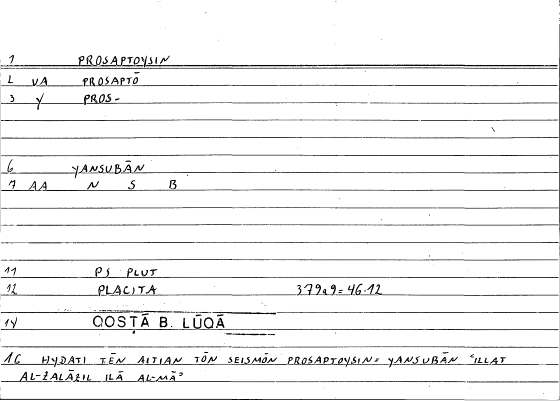 1 PROSAPTOYSIN
2 VA PROSAPTŌ
3 Y PROS-
6 YANSUBĀN
7 AA N S B
11 PS PLUT
12 PLACITA 379a9=46.12
14 QOSṬĀ B. LŪQĀ
16 HYDATI TĒN AITIAN TŌN SEISMŌN PROSAPTOYSIN= YANSUBĀN ʿILLAT
AL-ZALĀZIL ILĀ AL-MĀʾ